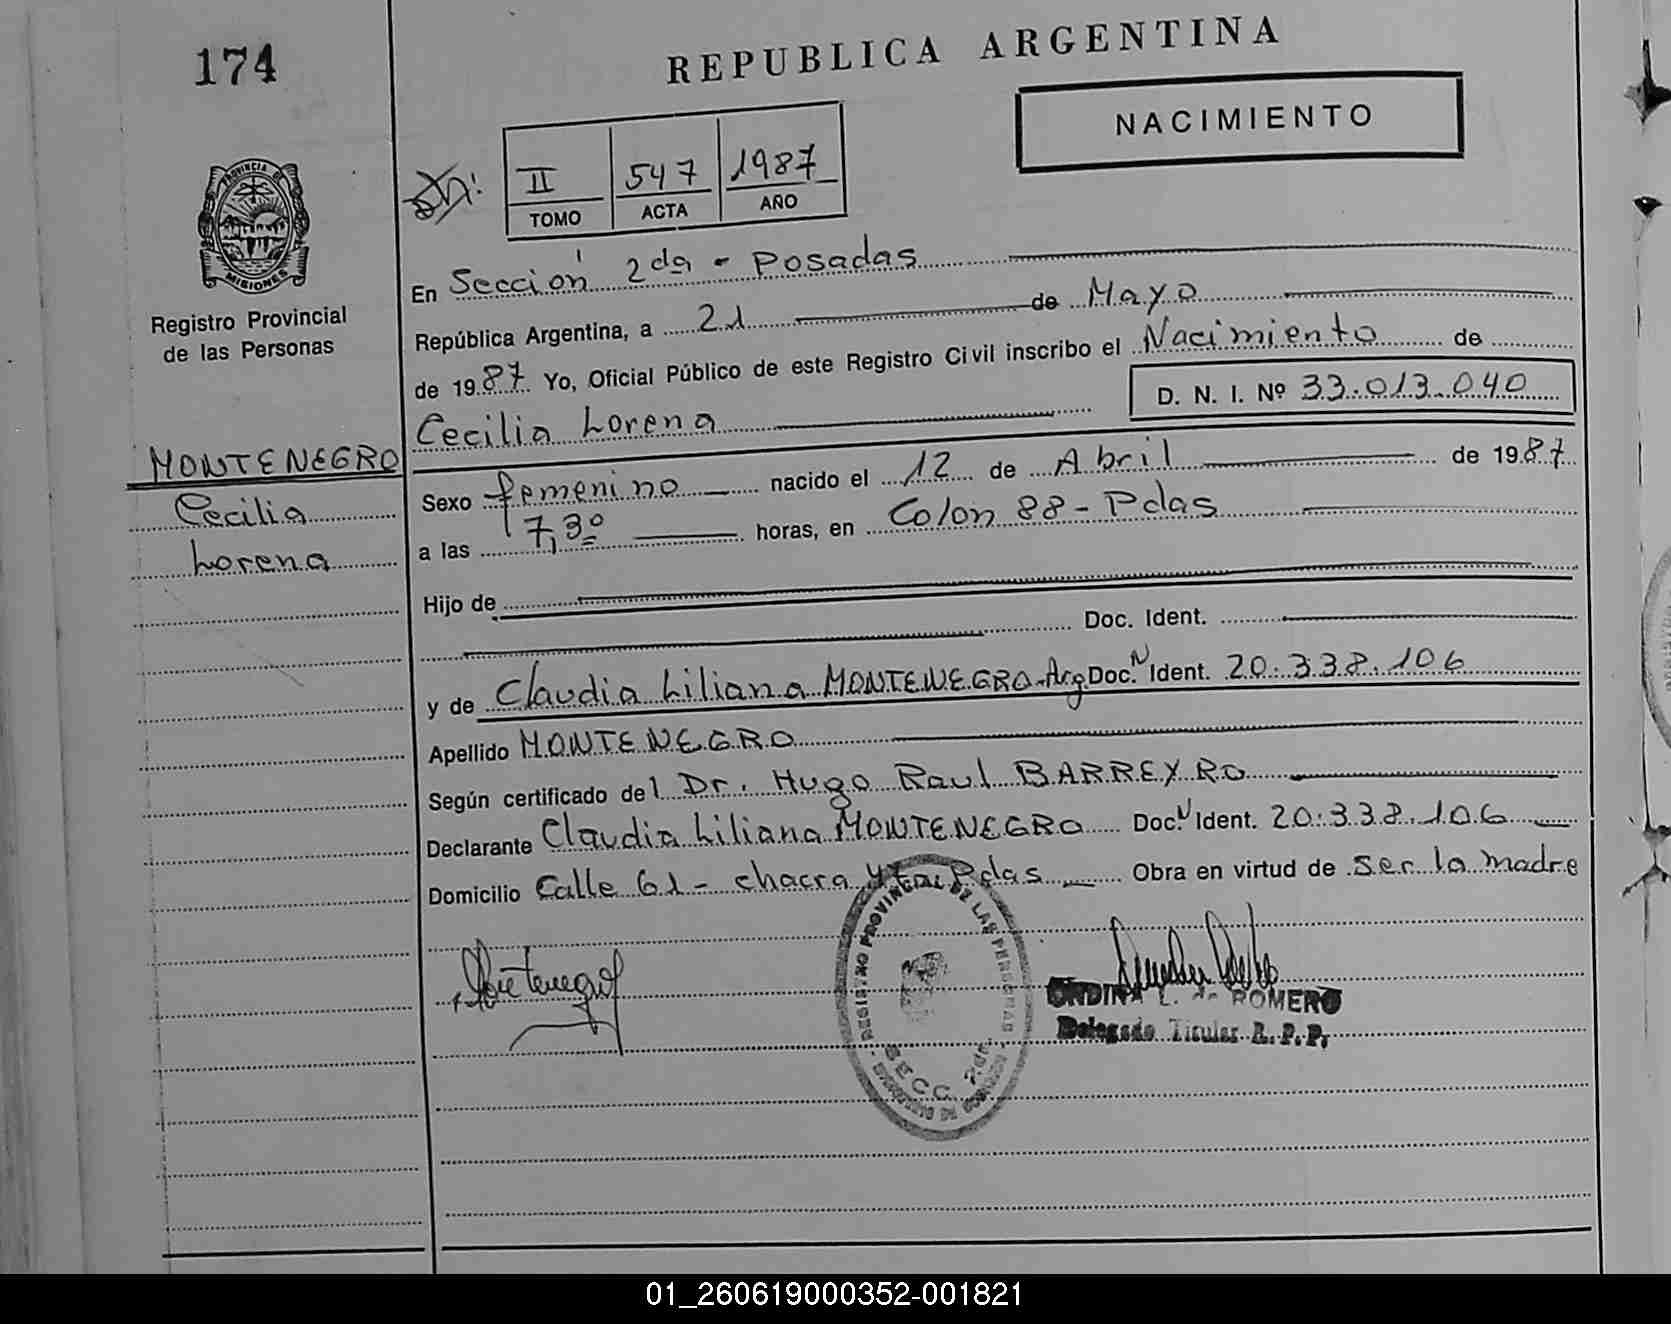 174
REPUBLICA ARGENTINA
NACIMIENTO
II 547 1987
TOMO ACTA AÑO
PROVINCIA DE
MISIONES
Registro Provincial
de las Personas
En Sección 2da - Posadas
República Argentina, a 21 de Mayo
de 1987 Yo, Oficial Público de este Registro Civil inscribo el Nacimiento de
D. N. I. Nº 33.013.040
Cecilia Lorena
MONTENEGRO
Cecilia
Lorena
Sexo femenino nacido el 12 de Abril de 1987
a las 7,30 horas, en Colon 88 - Pdas
Hijo de
Doc. Ident.
y de Claudia Liliana MONTENEGRO-Arg Doc. N Ident. 20.338.106
Apellido MONTENEGRO
Según certificado del Dr. Hugo Raul BARREYRO
Declarante Claudia Liliana MONTENEGRO Doc. N Ident. 20.338.106
Domicilio Calle 61 - chacra Pdas Obra en virtud de ser la madre
REGISTRO PROVINCIAL DE LAS PERSONAS
SECC. 2da.
ONDINA L. de ROMERO
Delegado Titular R. P. P.
01_260619000352-001821